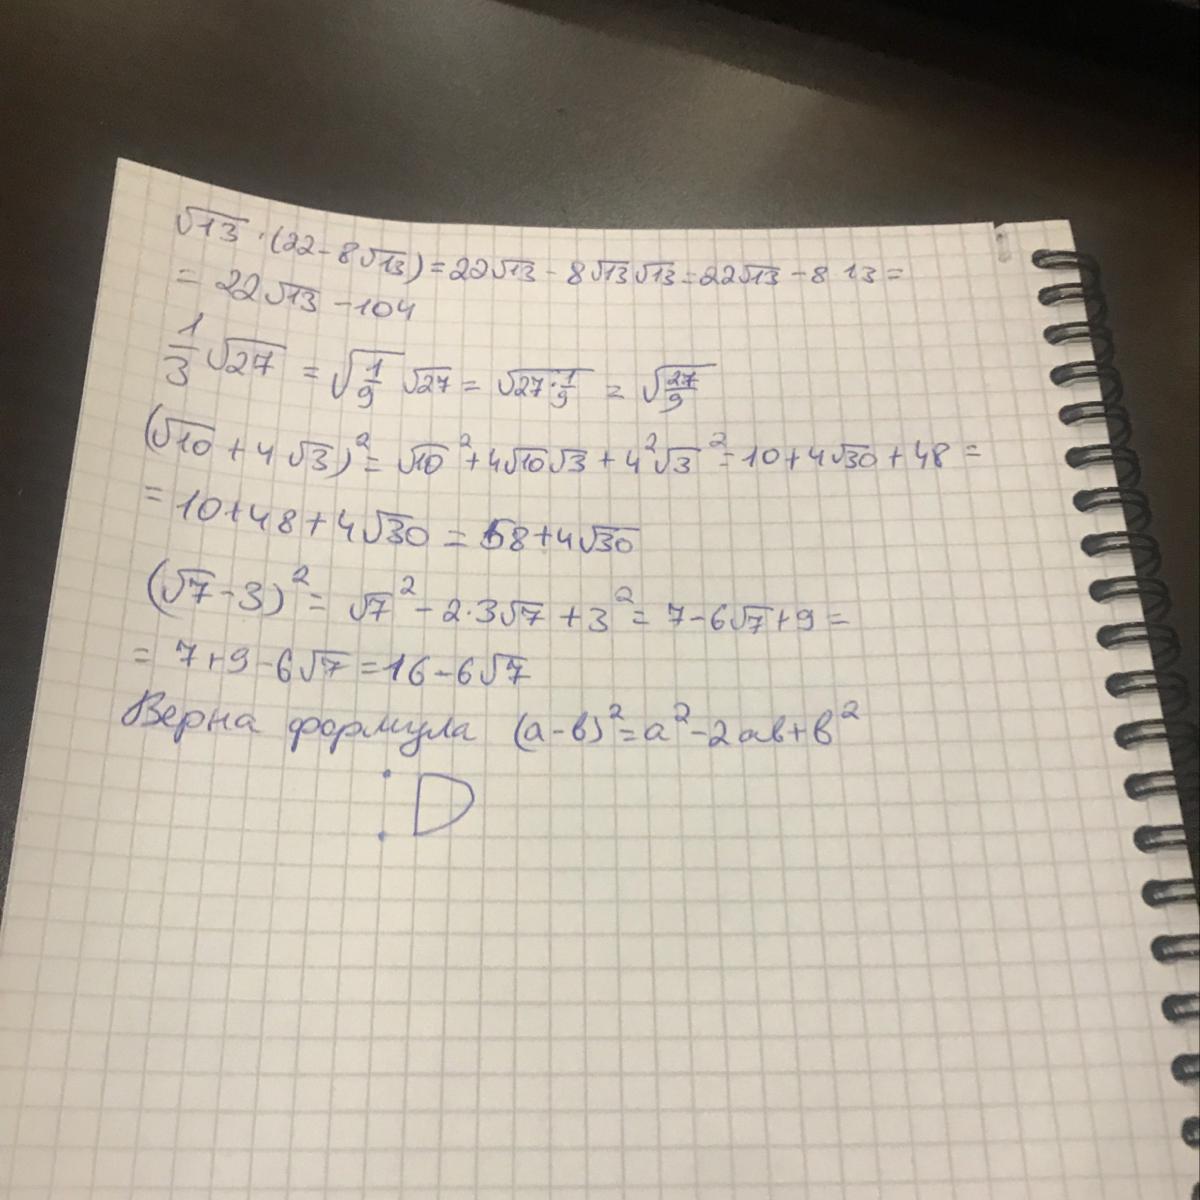 √13 · (22 - 8√13) = 22√13 - 8√13√13 = 22√13 - 8 13 =
= 22√13 - 104
1/3 √27 = √1/9 √27 = √27·1/9 = √27/9
(√10 + 4√3)² = √10² + 4√10√3 + 4²√3² = 10 + 4√30 + 48 =
= 10 + 48 + 4√30 = 58 + 4√30
(√7 - 3)² = √7² - 2·3√7 + 3² = 7 - 6√7 + 9 =
= 7 + 9 - 6√7 = 16 - 6√7
Верна формула (a-b)² = a² - 2ab + b²
:D